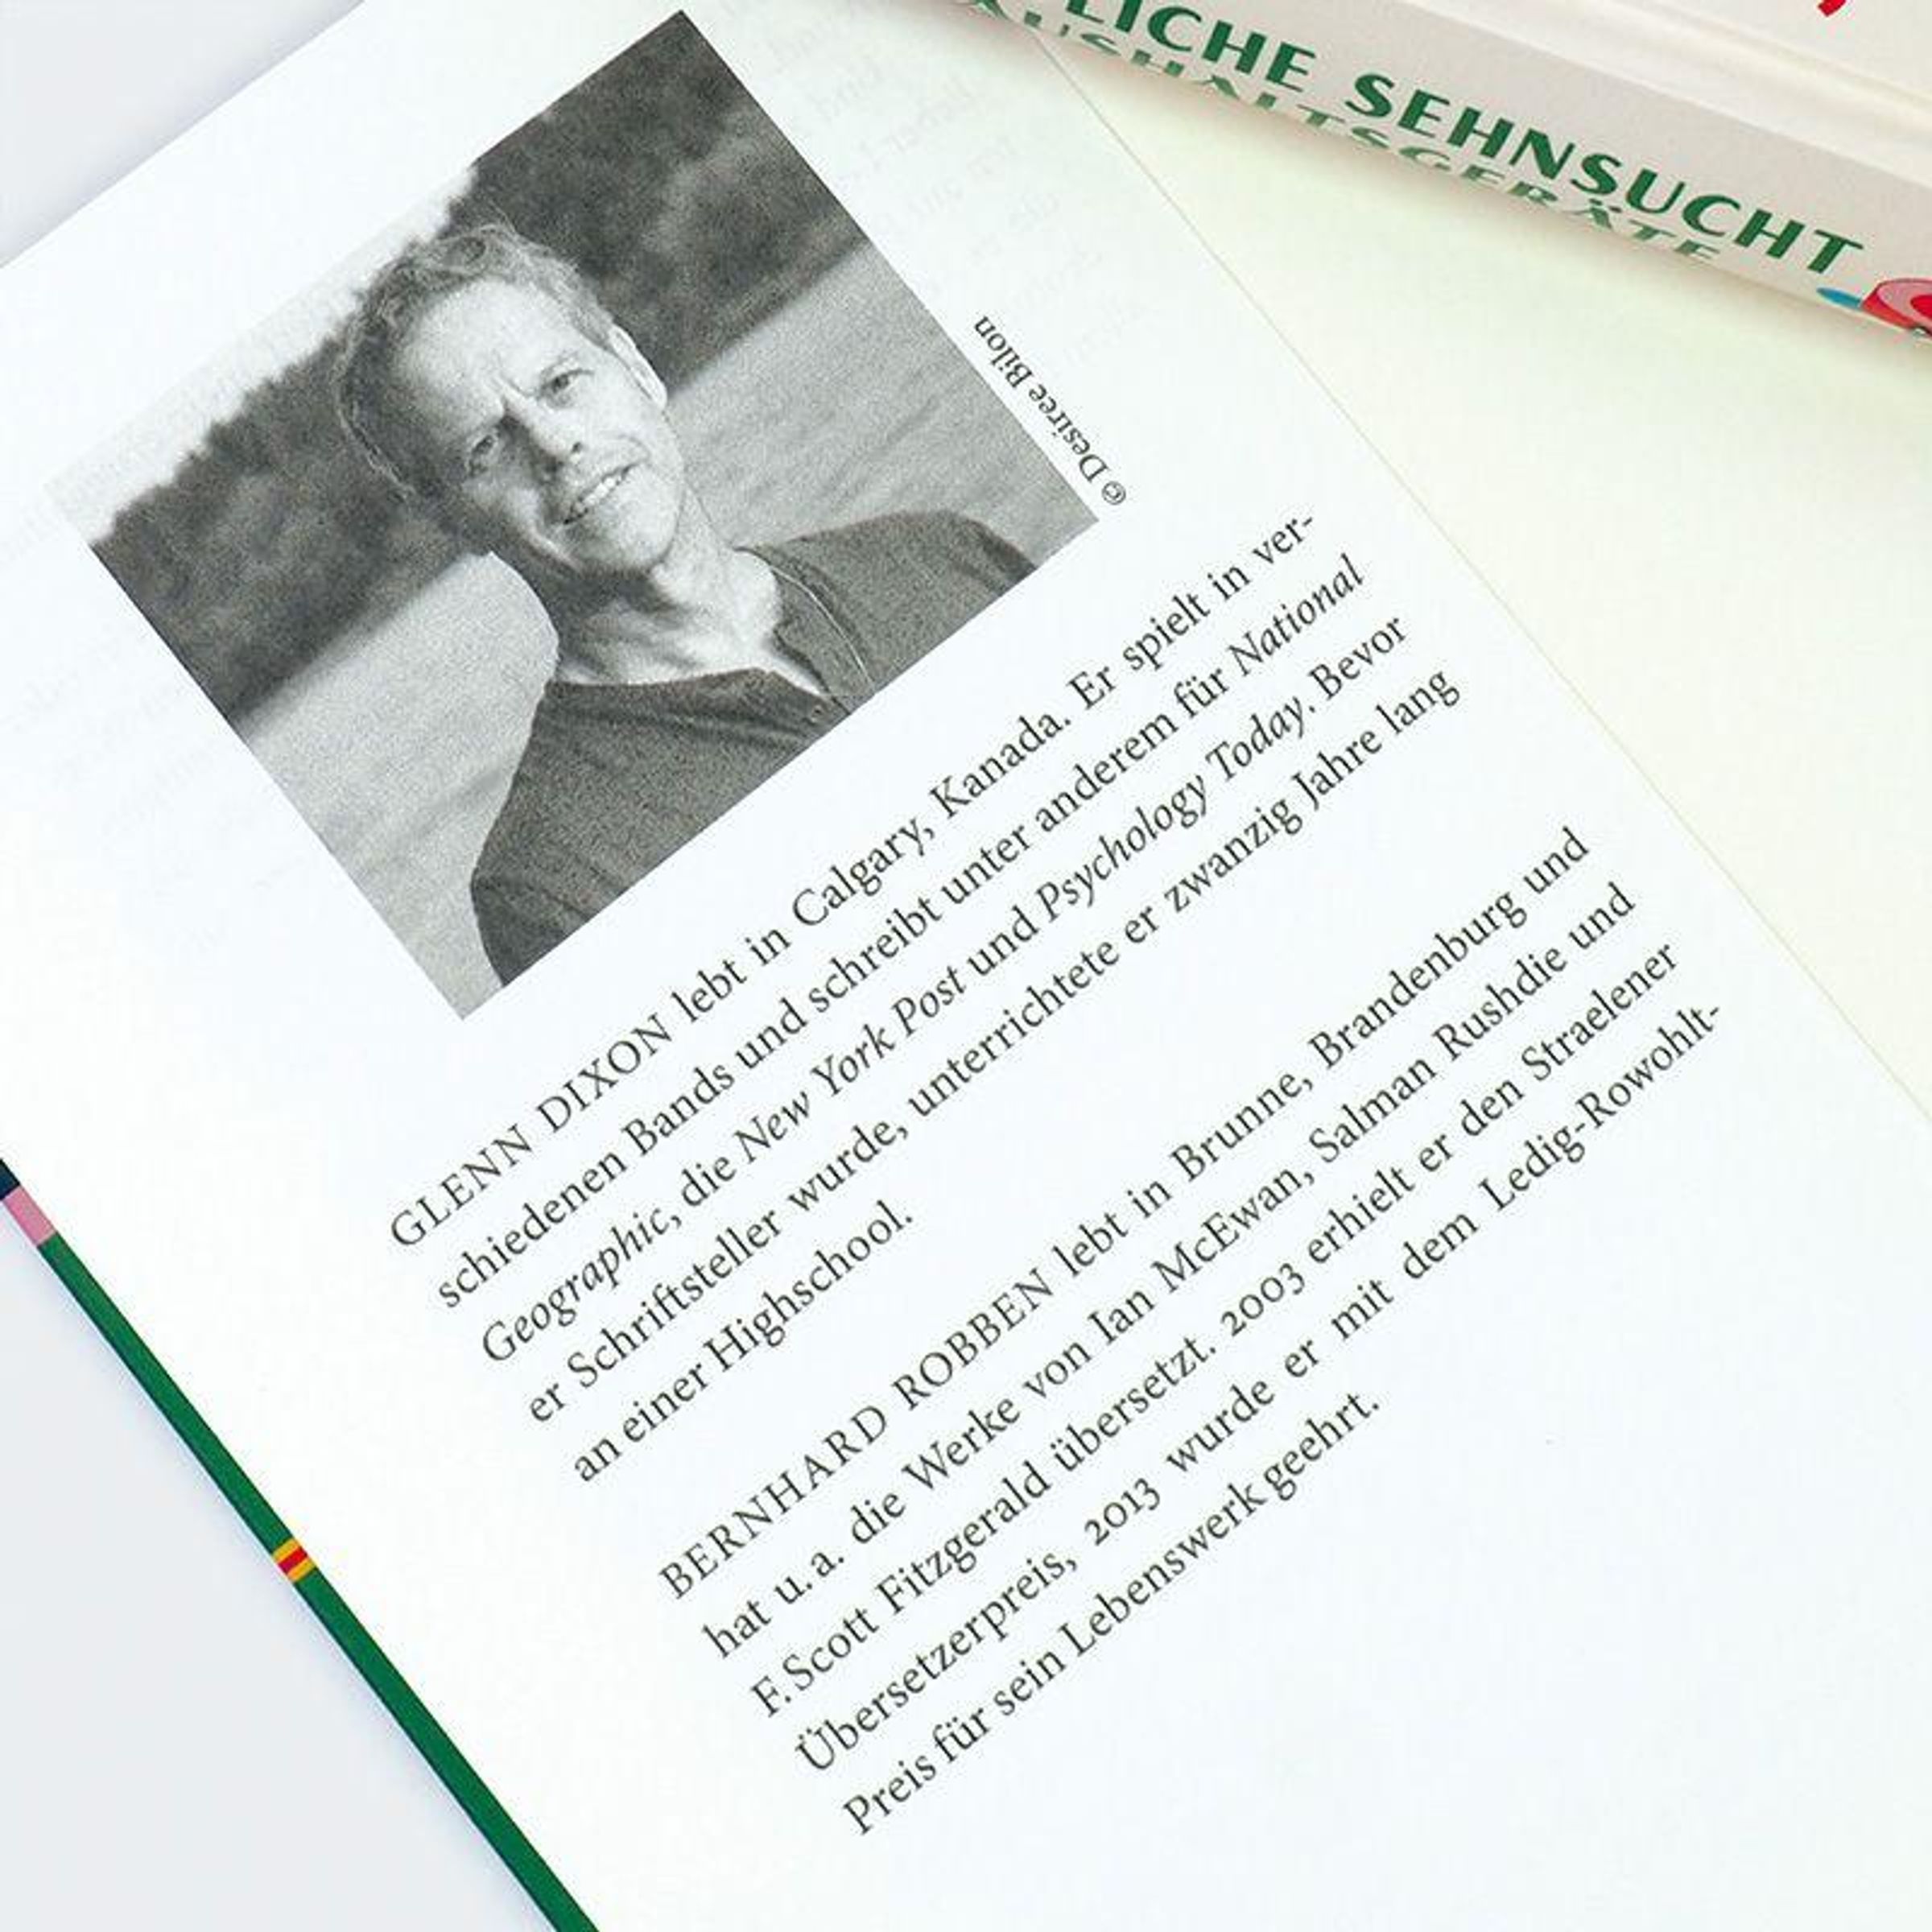 LICHE SEHNSUCHT
AUSHALTSGERÄTE
© Desiree Bilon
GLENN DIXON lebt in Calgary, Kanada. Er spielt in ver-
schiedenen Bands und schreibt unter anderem für National
Geographic, die New York Post und Psychology Today. Bevor
er Schriftsteller wurde, unterrichtete er zwanzig Jahre lang
an einer Highschool.
BERNHARD ROBBEN lebt in Brunne, Brandenburg und
hat u. a. die Werke von Ian McEwan, Salman Rushdie und
F. Scott Fitzgerald übersetzt. 2003 erhielt er den Straelener
Übersetzerpreis, 2013 wurde er mit dem Ledig-Rowohlt-
Preis für sein Lebenswerk geehrt.